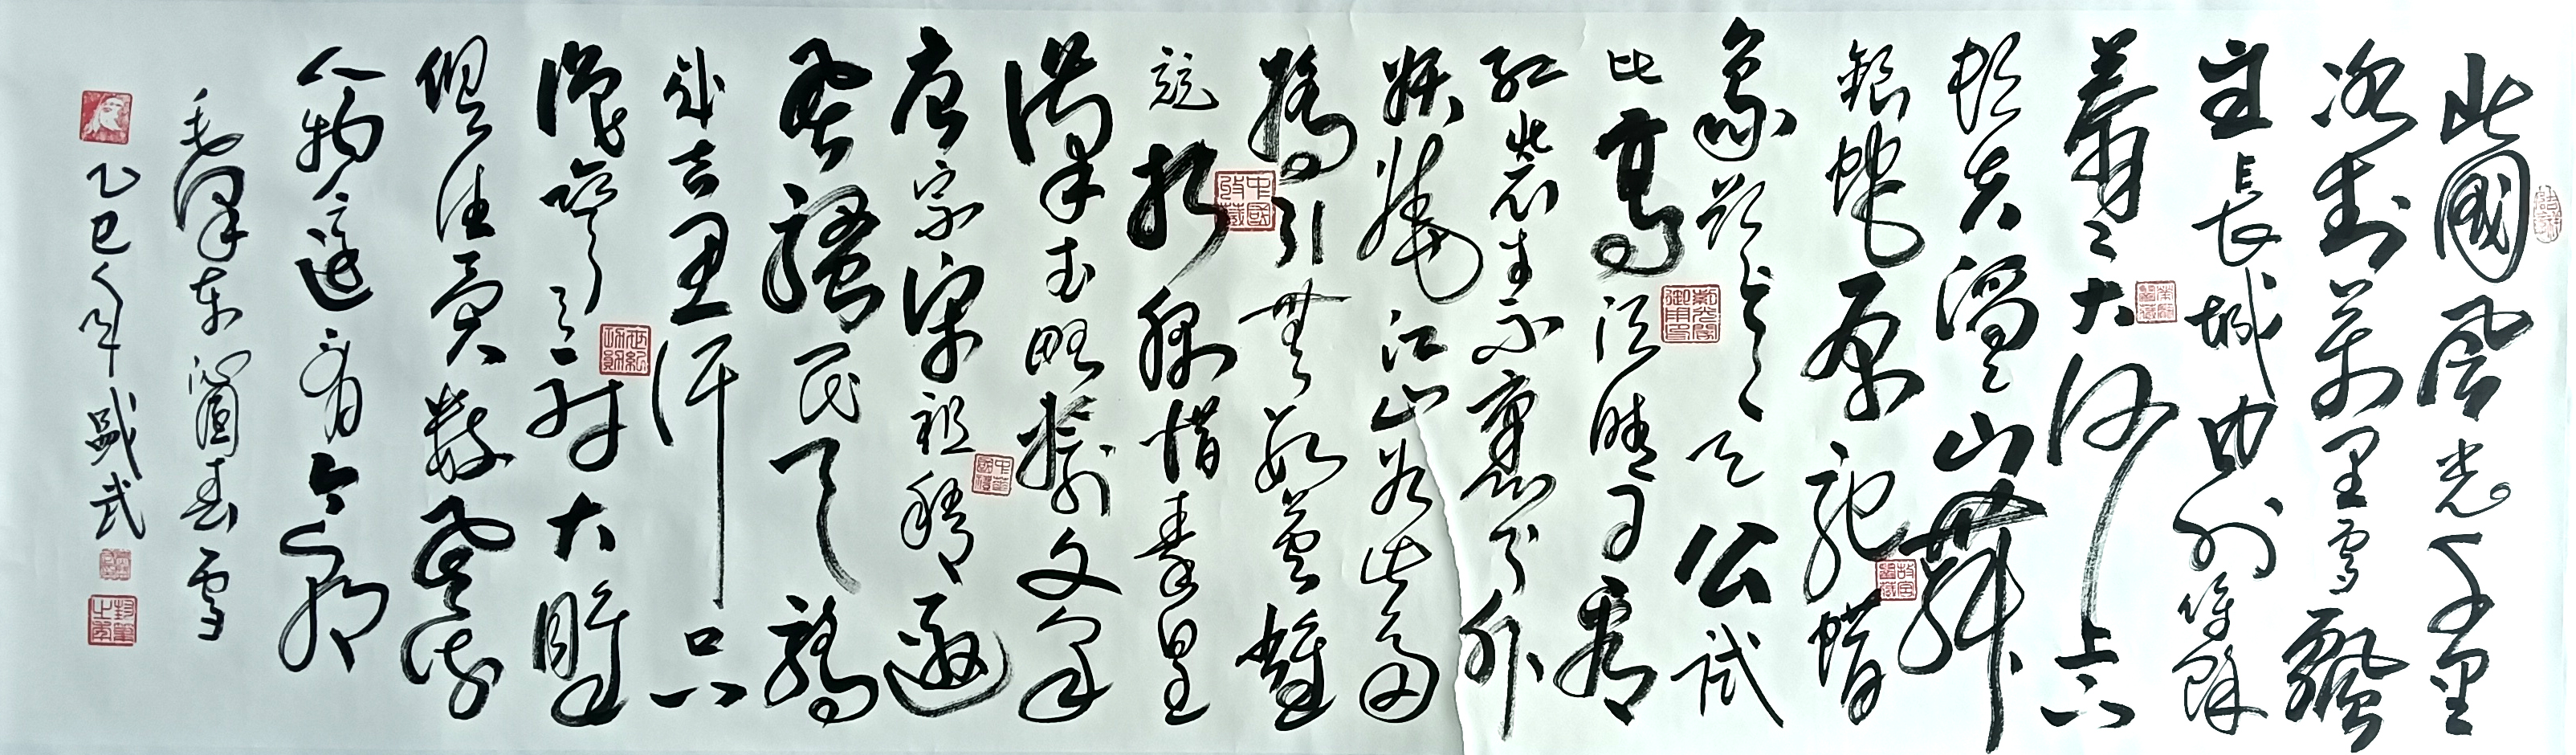 北國風光千里
冰封萬里雪飄
望長城内外惟餘
莽莽大河上下
頓失滔滔山舞
銀蛇原馳蠟
象欲與天公試
比高須晴日看
紅裝素裹分外
妖嬈江山如此多
嬌引無數英雄
競折腰惜秦皇
漢武略輸文采
唐宗宋祖稍遜
風騷一代天驕
成吉思汗只
識彎弓射大雕
俱往矣數風流
人物還看今朝
毛澤東沁園春雪
乙巳年盛武